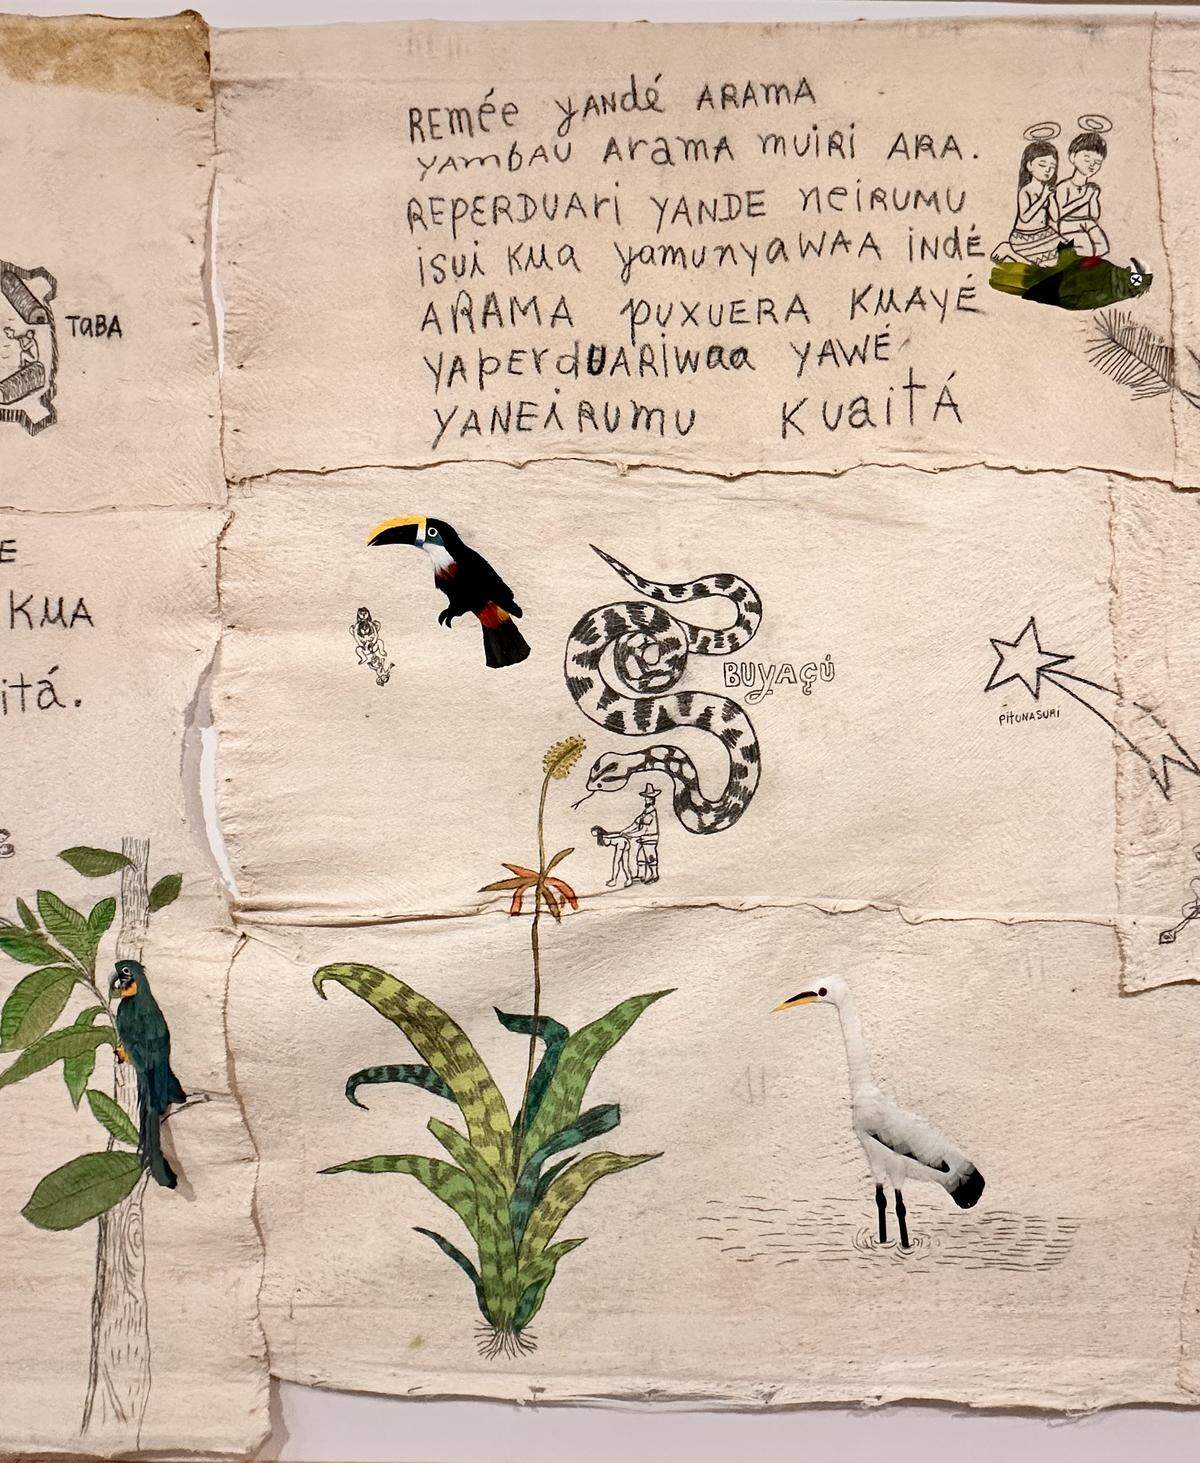 REMÉE YANDÉ ARAMA
YAMBAU ARAMA MUIRI ARA.
REPERDUARI YANDE NEIRUMU
ISUI KUA YAMUNYAWAA INDÉ
ARAMA PUXUERA KUAYÉ
YAPERDUARIWAA YAWÉ
YANEIRUMU KUAITÁ
TABA
E
KUA
itá.
BUYAÇÚ
PITUNASURI